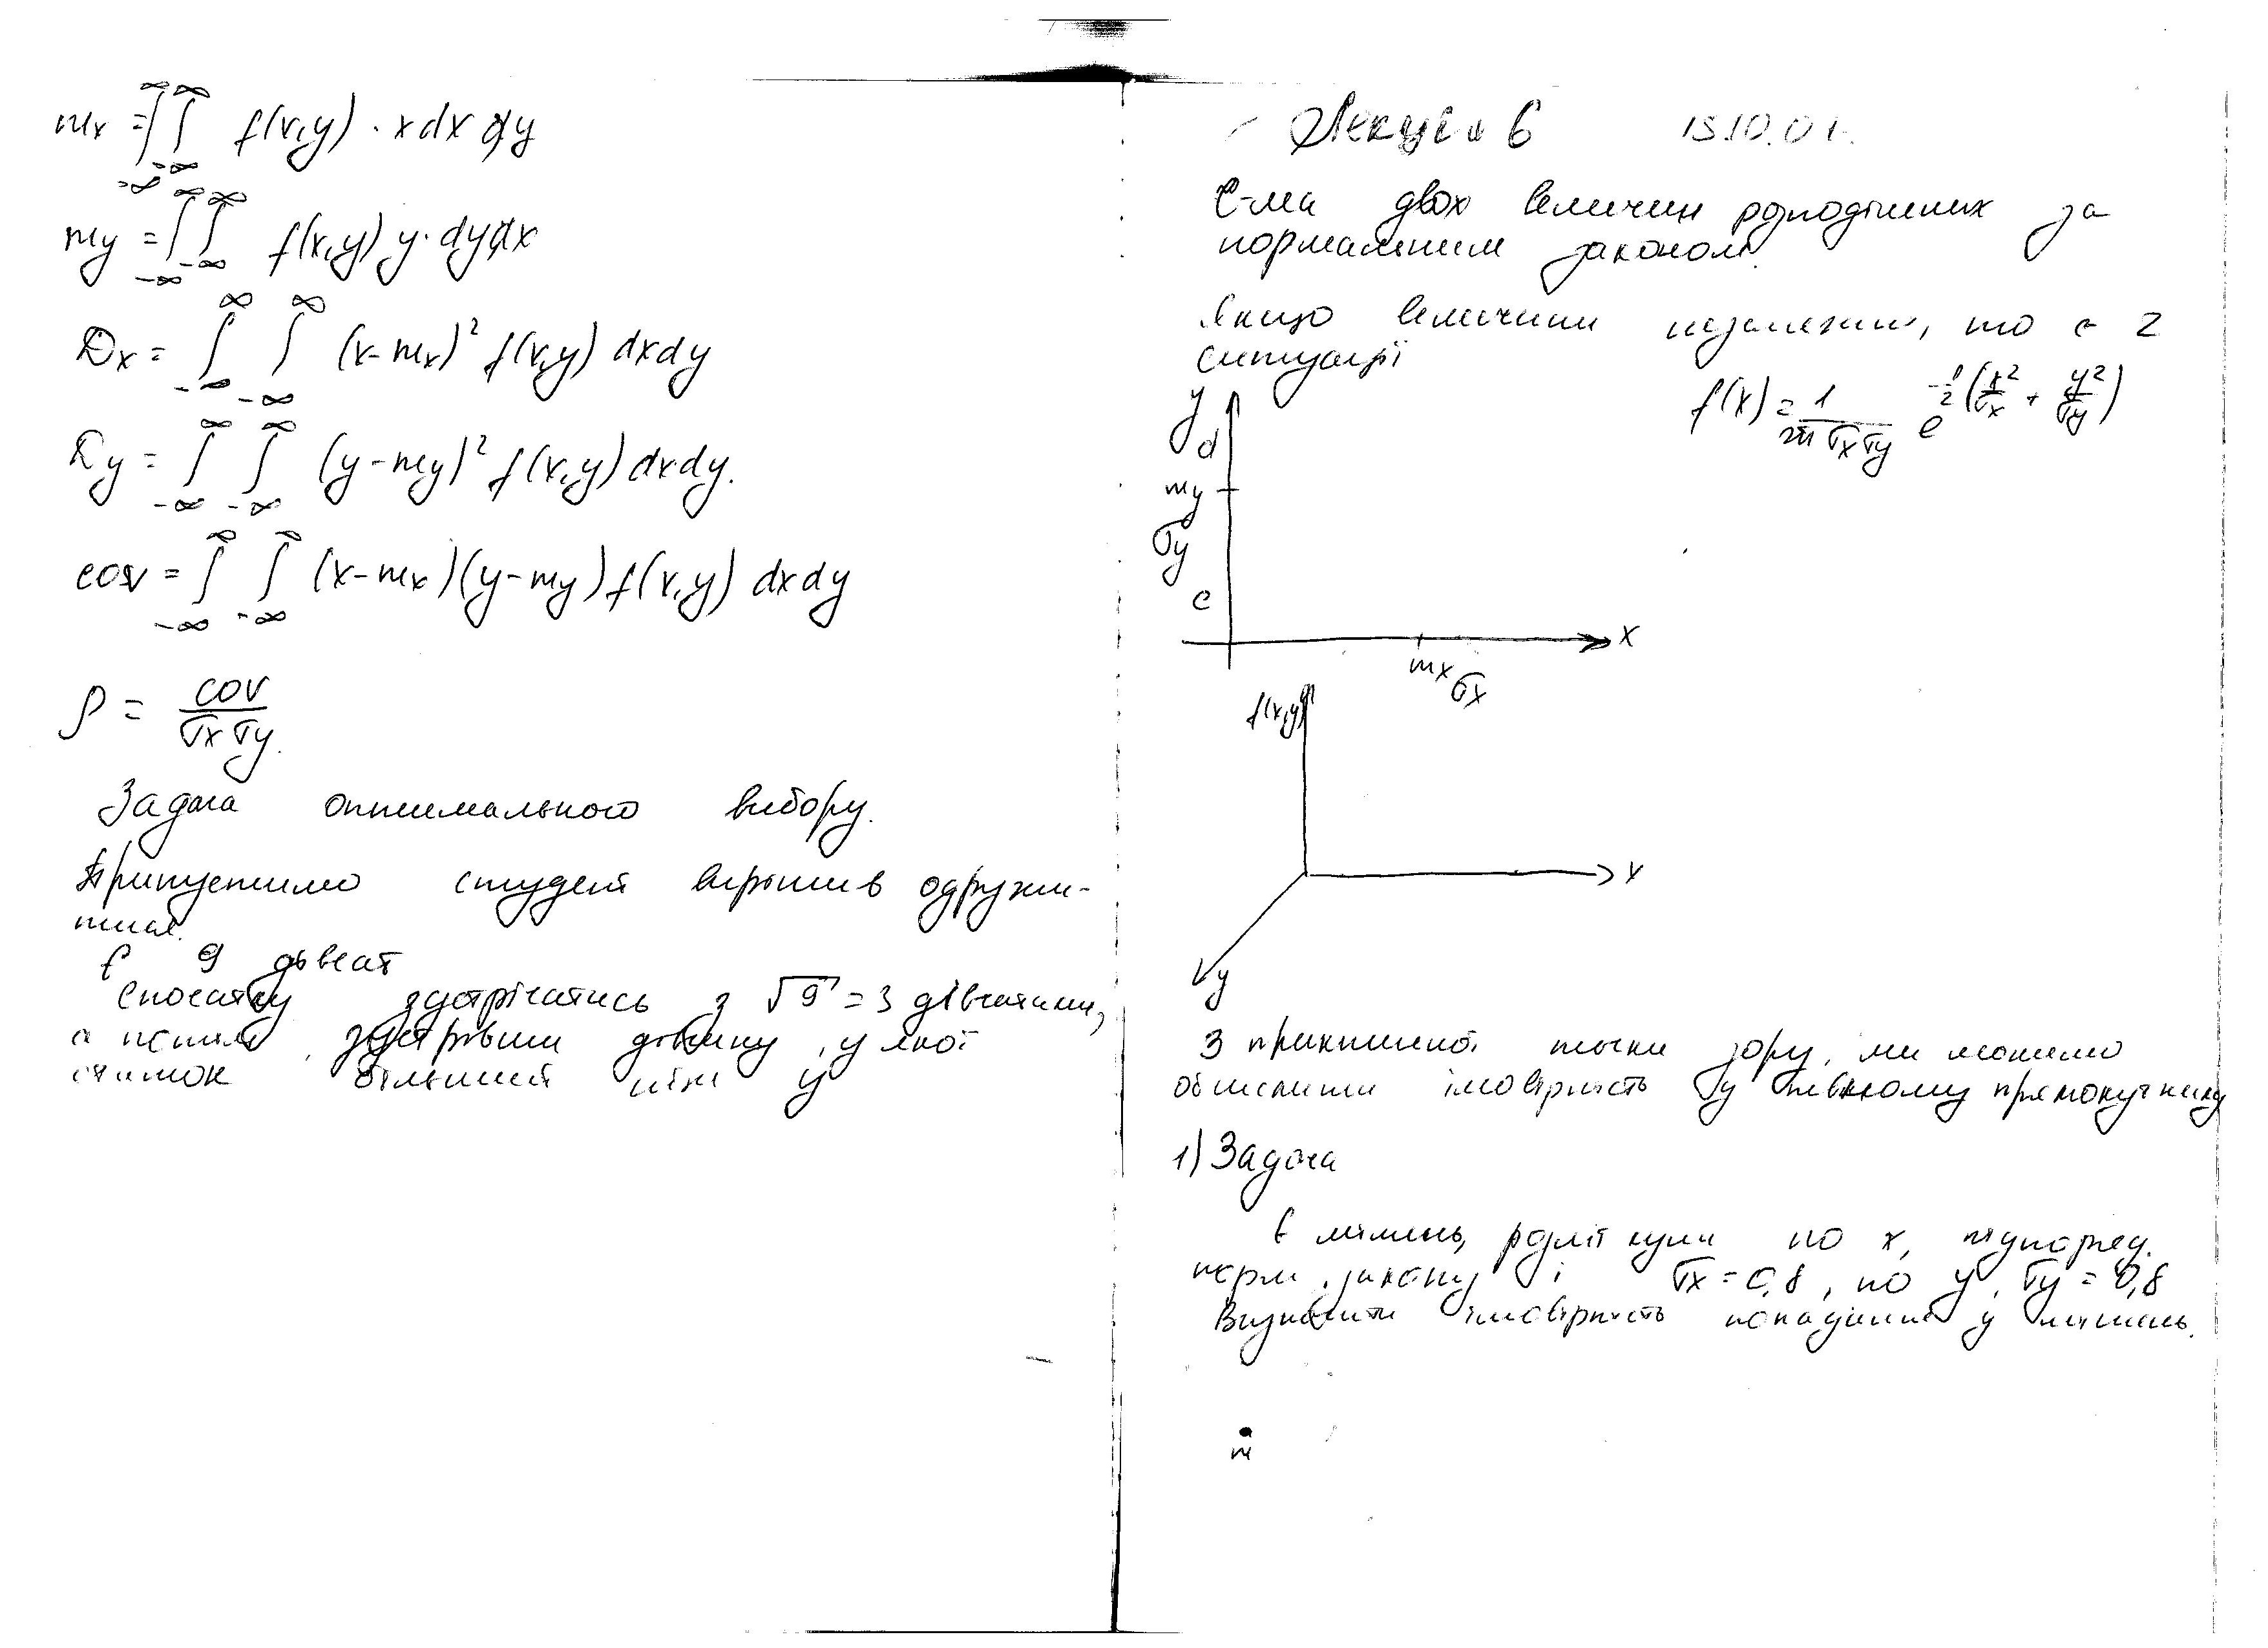 mx = ∫∫ f(x,y) · x dx dy
∞ ∞
-∞ -∞
my = ∫∫ f(x,y) y · dy dx
∞ ∞
-∞ -∞
Dx = ∫ ∫ (x-mx)² f(x,y) dx dy
∞ ∞
-∞ -∞
Dy = ∫ ∫ (y-my)² f(x,y) dx dy.
∞ ∞
-∞ -∞
cov = ∫ ∫ (x-mx)(y-my) f(x,y) dx dy
∞ ∞
-∞ -∞
ρ = cov / σx σy.
Задача оптимального вибору.
Припустимо студент вирішив одружи-
тися.
Є 9 дівчат
Спочатку зустрічатись з √9 = 3 дівчатами,
а потім, зустрівши дівчину, у якої
більший ніж у
Лекція 6 15.10.01.
С-ма двох величин розподілених за
нормальним законом.
Якщо величини незалежні, то є 2
ситуації
f(x) = 1/(2π σx σy) e^(-1/2 (x²/σx + y²/σy))
y
d
my
σy
c
x
mx σx
f(x,y)
x
y
З практичної точки зору, ми можемо
обчислити імовірність у певному прямокутнику
1) Задача
Є мішень, розліт кулі по x, підпоряд.
норм. закону і σx = 0,8, по y, σy = 0,8
Визначити імовірність попадання у мішень.
m